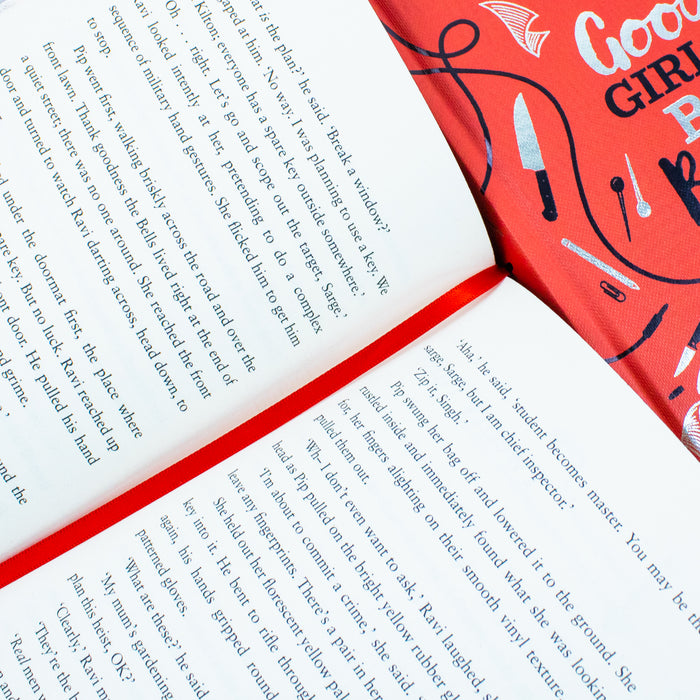 hat is the plan?' he said. 'Break a window?'
gaped at him. 'No way. I was planning to use a key. We
Kilton; everyone has a spare key outside somewhere.'
Oh . . . right. Let's go and scope out the target, Sarge.'
Ravi looked intently at her, pretending to do a complex
sequence of military hand gestures. She flicked him to get him
to stop.
Pip went first, walking briskly across the road and over the
front lawn. Thank goodness the Bells lived right at the end of
a quiet street; there was no one around. She reached the front
door and turned to watch Ravi darting across, head down, to
ed under the doormat first, the place where
are key. But no luck. Ravi reached up
ont door. He pulled his hand
nd grime.
ound the
'Aha,' he said, 'student becomes master. You may be th
sarge, Sarge, but I am chief inspector.'
'Zip it, Singh.'
Pip swung her bag off and lowered it to the ground. She
rustled inside and immediately found what she was look
for, her fingers alighting on their smooth vinyl texture.
pulled them out.
'Wh- I don't even want to ask,' Ravi laughed, sh
head as Pip pulled on the bright yellow rubber g
'I'm about to commit a crime,' she said.
leave any fingerprints. There's a pair in her
She held out her florescent yellow pal
key into it. He bent to rifle through
again, his hands gripped round
patterned gloves.
'What are these?' he said
'My mum's gardening
plan this heist, OK?'
'Clearly,' Ravi m
'They're the b
'Real men
Goo
GIRL
B